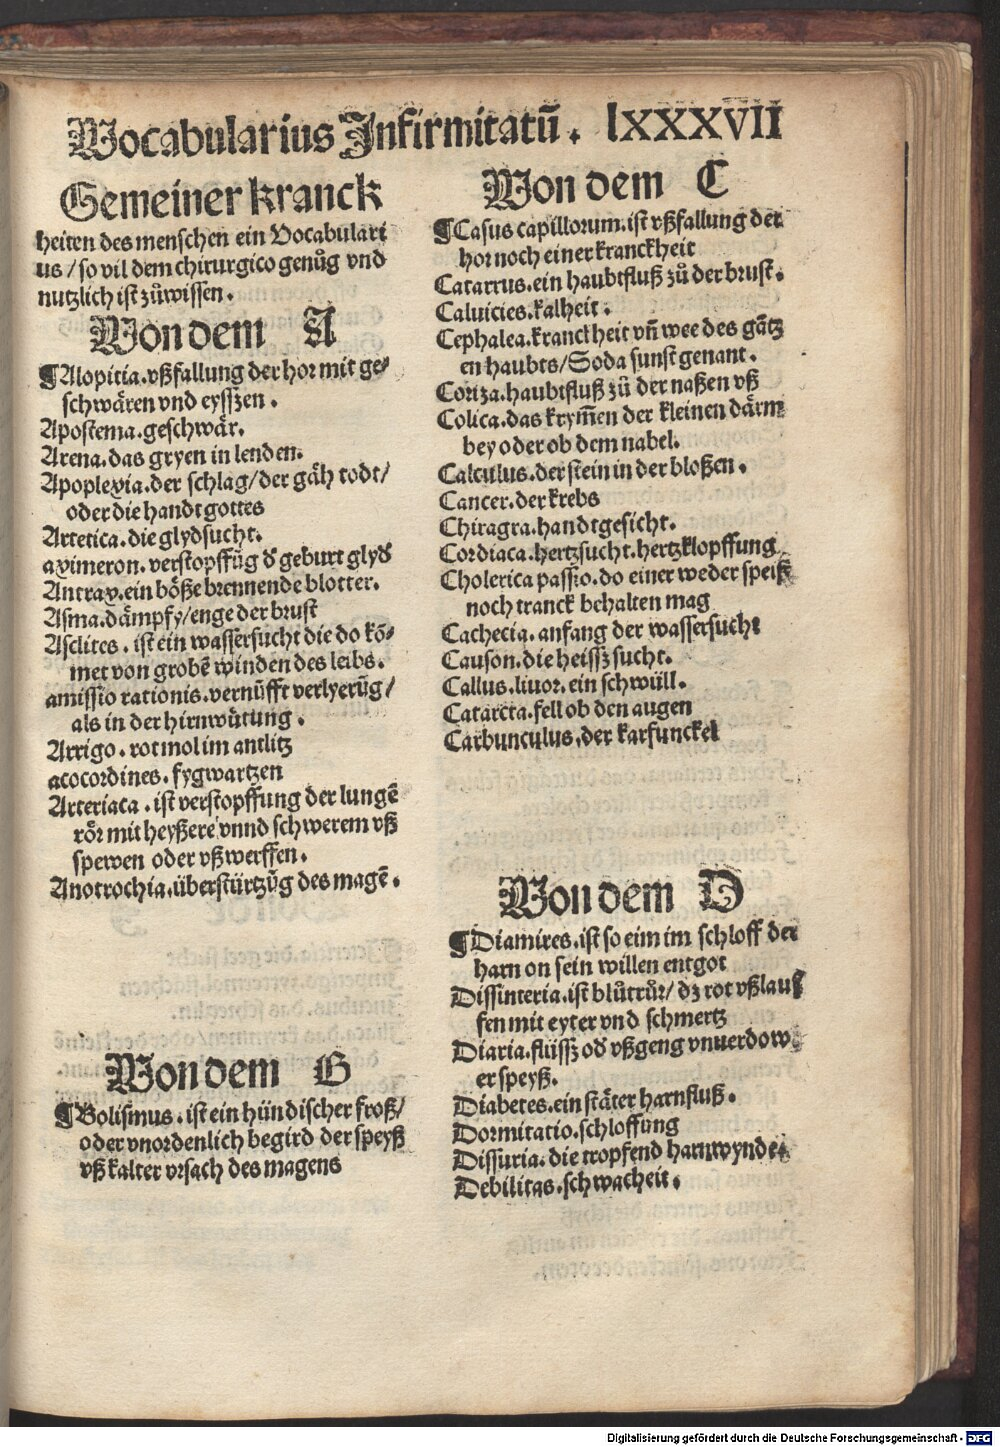 Vocabularius Infirmitatū. lXXXVII
Gemeiner kranck
heiten des menschen ein Vocabulari
us / so vil dem chirurgico genůg vnd
nutzlich ist zůwissen.
Von dem A
¶Alopitia.vßfallung der hor mit ge⸗
schwären vnd eysszen.
Apostema.geschwär.
Arena.das gryen in lenden.
Apoplexia.der schlag/der gäh todt/
oder die handt gottes
Artetica.die glydsucht.
aximeron.verstopffūg d̕ geburt glyd̕
Antrax.ein böße brennende blotter.
Asma.dämpfy/enge der brust
Asclites. ist ein wassersucht die do kō⸗
met von grobē winden des leibs.
amissio rationis.vernūfft verlyerūg/
als in der hirnwůtung.
Arrigo. rotmol im antlitz
acocordines. fygwartzen
Arteriaca. ist verstopffung der lungē
rör mit heyßere vnnd schwerem vß
spewen oder vßwerffen.
Anotrochia.überstürtzūg des magē.
Von dem B
¶Bolismus.ist ein hündischer froß/
oder vnordenlich begird der speyß
vß kalter vrsach des magens
Von dem C
¶Casus capillorum.ist vßfallung der
hor noch einer kranckheit
Catarrus.ein haubtfluß zů der brust.
Caluicies.kalheit.
Cephalea.kranckheit vn̄ wee des gātz
en haubts/Soda sunst genant.
Coriza.haubtfluß zů der naßen vß
Colica.das krym̄en der kleinen därm
bey oder ob dem nabel.
Calculus.der stein in der bloßen.
Cancer.der krebs
Chiragra.handtgesicht.
Cordiaca.hertzsucht.hertzklopffung
Cholerica passio.do einer weder speiß
noch tranck behalten mag
Cachecia.anfang der wassersucht
Causon.die heissz sucht.
Callus.liuor.ein schwüll.
Catarcta.fell ob den augen
Carbunculus.der karfunckel
Von dem D
¶Diamires.ist so eim im schloff der
harn on sein willen entgot
Dissinteria.ist blůtrůr/ dz rot vßlauf
fen mit eyter vnd schmertz
Diaria.flüssz od̕ vßgeng vnuerdow
er speyß.
Diabetes.ein stäter harnfluß.
Dormitatio.schloffung
Dissuria.die tropfend harnwynde.
Debilitas.schwacheit.
Digitalisierung gefördert durch die Deutsche Forschungsgemeinschaft - DFG